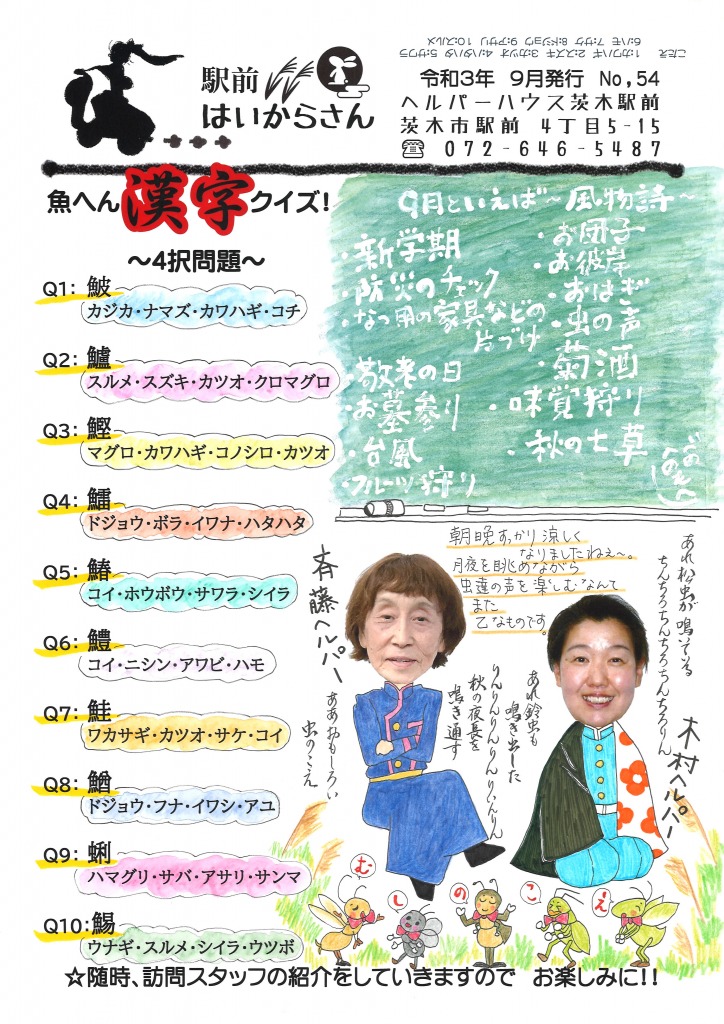 こたえ 1:カワハギ 2:スズキ 3:カツオ 4:ハタハタ 5:サワラ
6:ハモ 7:サケ 8:ドジョウ 9:アサリ 10:スルメ
駅前
はいからさん
令和3年 9月発行 No,54
ヘルパーハウス茨木駅前
茨木市駅前 4丁目5-15
☎ 072-646-5487
魚へん漢字クイズ!
～4択問題～
Q1: 鮍
カジカ・ナマズ・カワハギ・コチ
Q2: 鱸
スルメ・スズキ・カツオ・クロマグロ
Q3: 鰹
マグロ・カワハギ・コノシロ・カツオ
Q4: 鱩
ドジョウ・ボラ・イワナ・ハタハタ
Q5: 鰆
コイ・ホウボウ・サワラ・シイラ
Q6: 鱧
コイ・ニシン・アワビ・ハモ
Q7: 鮭
ワカサギ・カツオ・サケ・コイ
Q8: 鰌
ドジョウ・フナ・イワシ・アユ
Q9: 蜊
ハマグリ・サバ・アサリ・サンマ
Q10: 鯣
ウナギ・スルメ・シイラ・ウツボ
9月といえば～風物詩～
・新学期
・防災のチェック
・なつ用の家具などの
片づけ
・敬老の日
・お墓参り
・台風
・フルーツ狩り
・お団子
・お彼岸
おはぎ
・虫の声
・菊酒
・味覚狩り
・秋の七草
朝晩すっかり涼しく
なりましたねぇ～。
月夜を眺めながら
虫達の声を楽しむなんて
また
乙なものです。
斉藤ヘルパー
木村ヘルパー
あれ松虫が鳴いている
ちんちろちんちろちんちろりん
あれ鈴虫も
鳴き出した
りんりんりんりんりいんりん
秋の夜長を
鳴き通す
ああおもしろい
虫のこえ
むしのこえ
☆随時、訪問スタッフの紹介をしていきますので お楽しみに!!